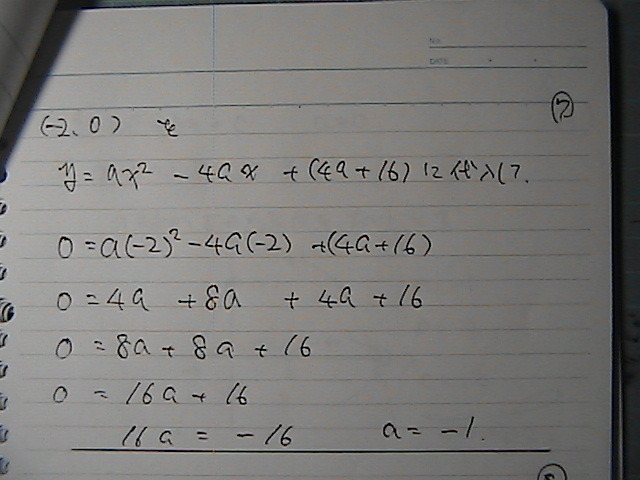 NO.
DATE
⑦
(-2, 0) を
y = ax² - 4ax + (4a+16) に代入して.
0 = a(-2)² - 4a(-2) + (4a+16)
0 = 4a + 8a + 4a + 16
0 = 8a + 8a + 16
0 = 16a + 16
16a = -16 a = -1.